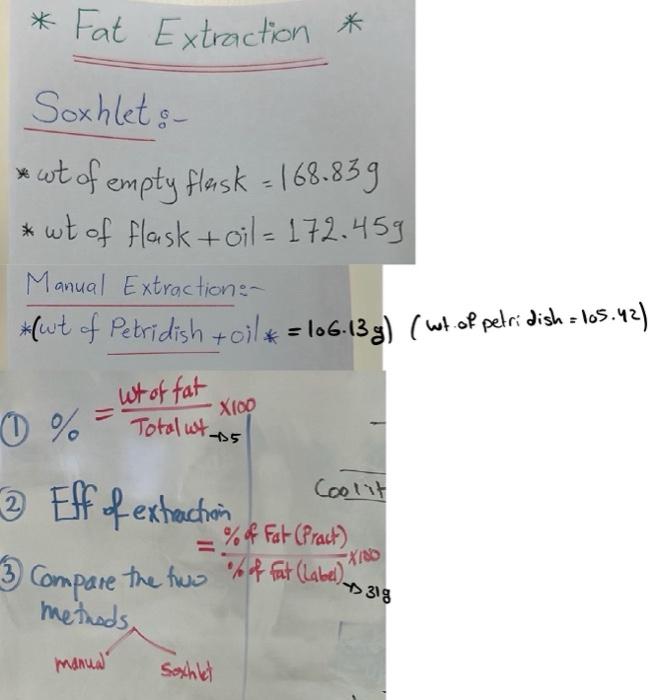 * Fat Extraction *
Soxhlet :-
* wt of empty flask = 168.83g
* wt of flask + oil = 172.45g
Manual Extraction:-
*(wt of Petridish + oil * = 106.13g) (wt. of petri dish = 105.42)
① % = wt of fat / Total wt →5 X100
Cool it
② Eff of extraction
= % of Fat (Pract) / % of fat (Label) →31g X100
③ Compare the two
methods
manual Soxhlet